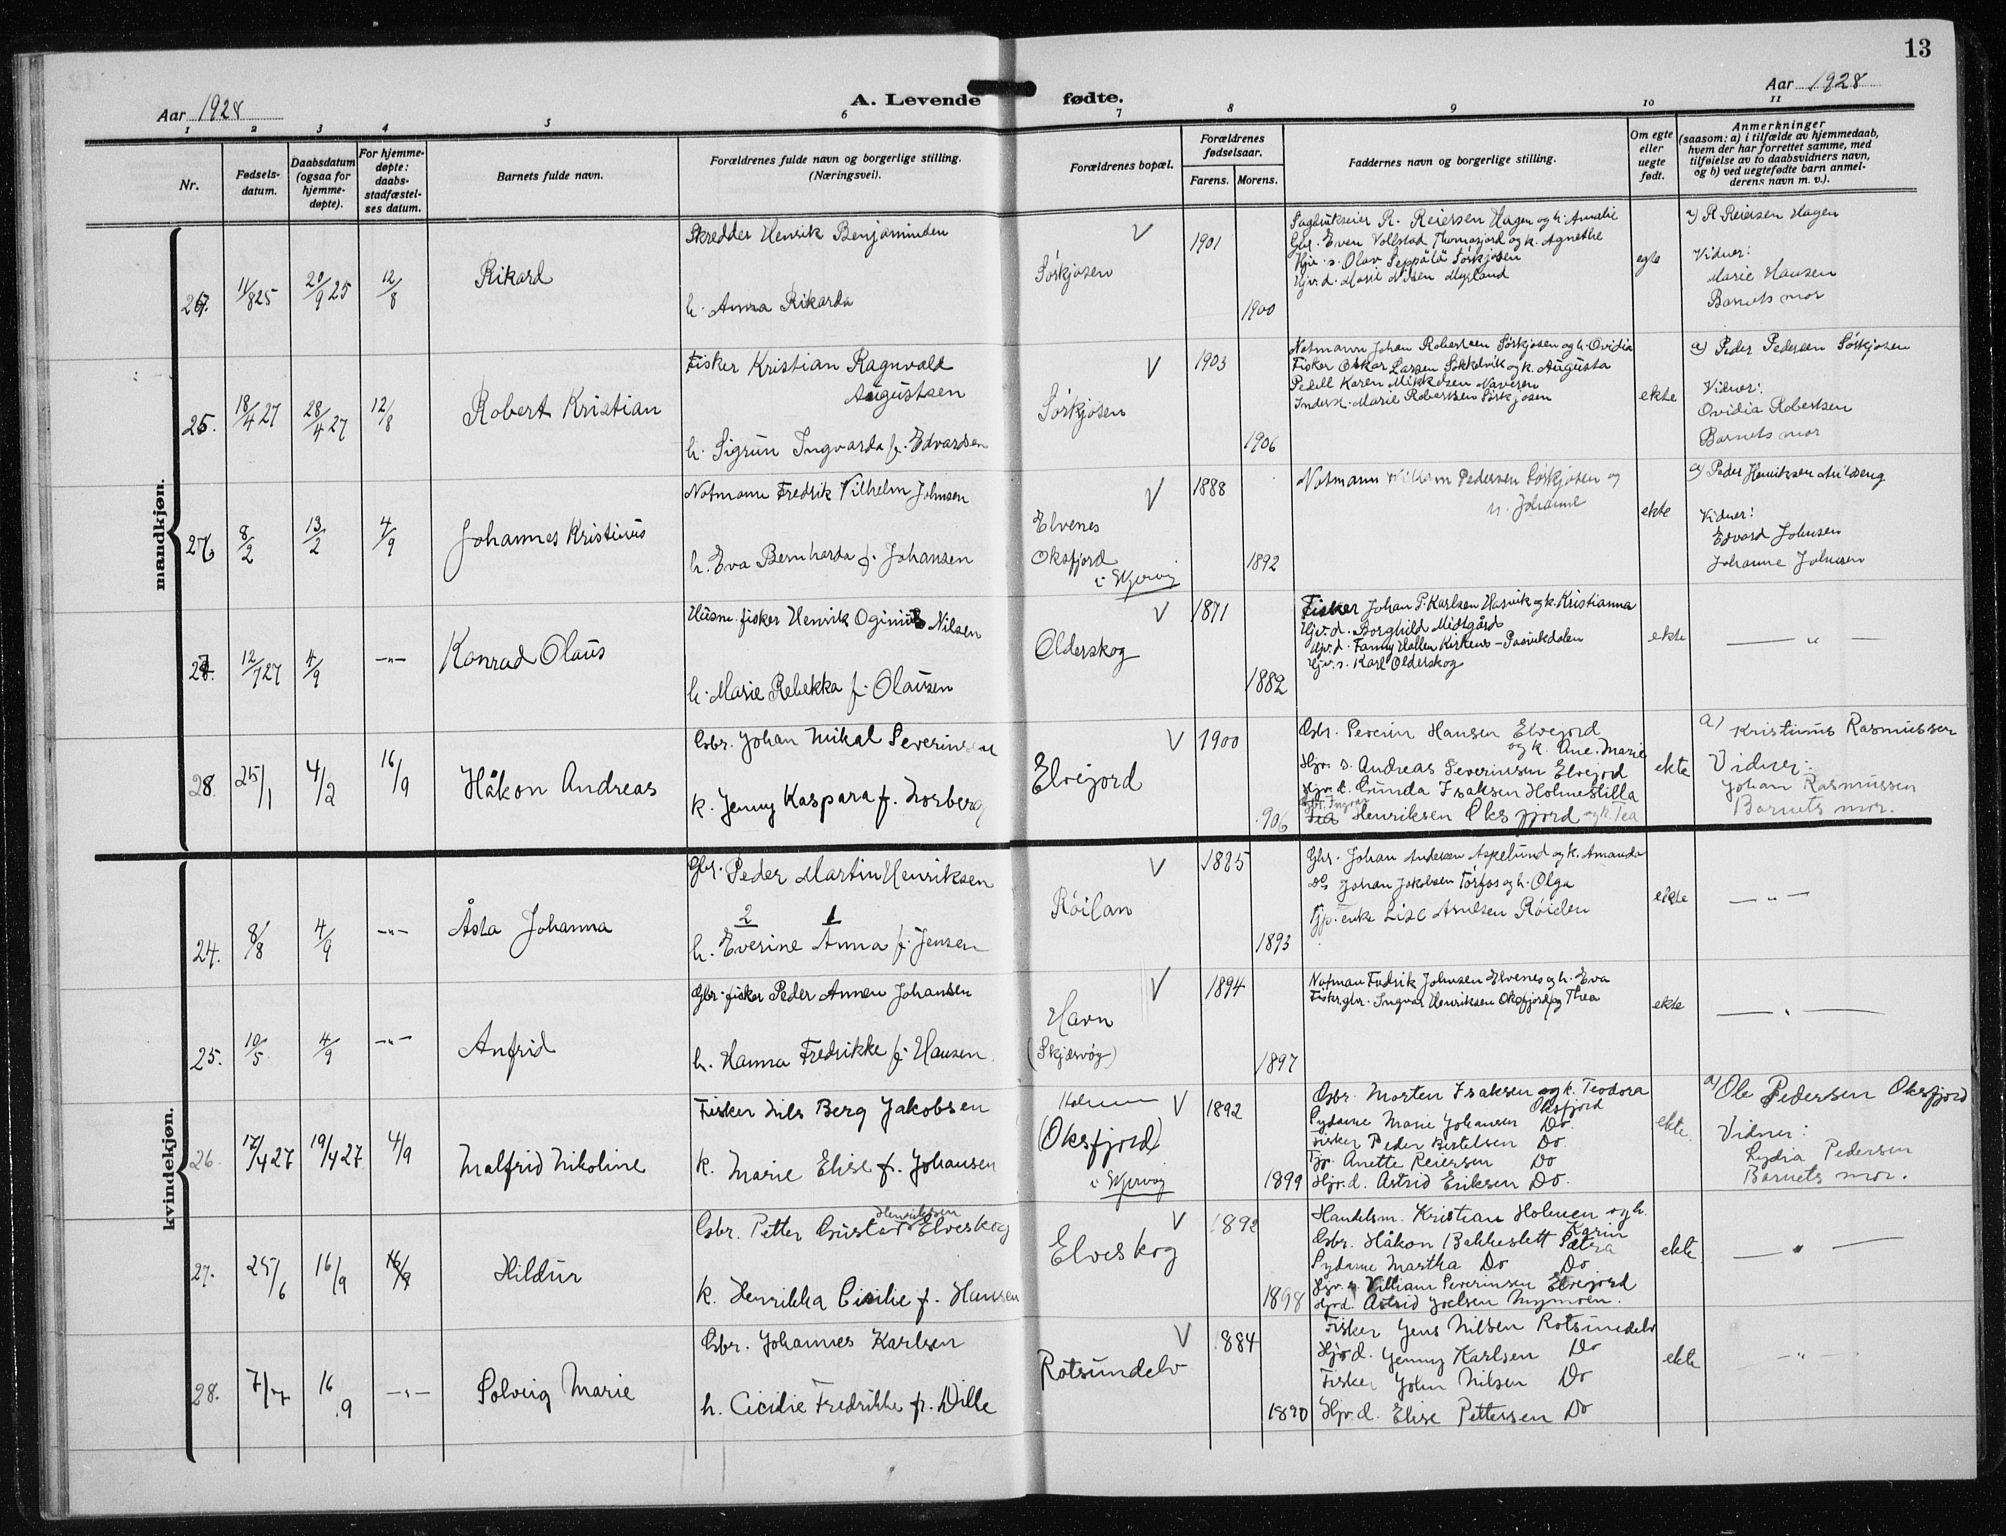 13
Aar 1928
A. Levende fødte.
Aar 1928
1 2 3 4 5 6 7 8 9 10 11
Nr.
Fødsels-
datum.
Daabsdatum
(ogsaa for
hjemme-
døpte).
For hjemme-
døpte:
daabs-
stadfæstel-
ses datum.
Barnets fulde navn.
Forældrenes fulde navn og borgerlige stilling.
(Næringsvei).
Forældrenes bopæl.
Forældrenes
fødselsaar.
Farens. Morens.
Faddernes navn og borgerlige stilling.
Om egte
eller
uegte
født.
Anmerkninger
(saasom: a) i tilfælde av hjemmedaab,
hvem der har forrettet samme, med
tilføielse av to daabsvidners navn,
og b) ved uegtefødte barn anmel-
derens navn m. v.).
mandkjøn.
11/8 25 20/9 25 12/8
Rikard
Skredder Henrik Benjaminsen
h. Anna Rikarda
V
Sörkjosen
1901
1900
Sagbrukseier R. Reiersen Hagen og h. Amalie
Gbr. Even Vollstad Thomasjord og k. Agnethe
Hjv. s. Olav Seppälä Sörkjosen
Hjv. d. Marie Nilsen Nyland
egte
a) R Reiersen Hagen
Vidner:
Marie Hansen
Barnets mor
18/4 27 28/4 27 12/8
Robert Kristian
Fisker Kristian Ragnvald
Augustsen
h. Sigrun Ingvarda f. Edvardsen
V
Sörkjosen
1903
1906
Notmann Johan Robertsen Sörkjosen og h. Ovidia
Fisker Oskar Larsen Sokkelvik og k. Augusta
Pedell Karen Mikkelsen Naveren
Marie Robertsen Sörkjosen
ekte
a) Peder Pedersen Sörkjosen
Vidner:
Ovidia Robertsen
Barnets mor
8/2 13/2 4/9
Johannes Kristinus
Notmann Fredrik Vilhelm Johnsen
h. Eva Bernharda f. Johansen
V
Elvenes
Oksfjord
i Skjervøy
1888
1892
Notmann William Pedersen Sörkjosen og
h. Johanne
ekte
a) Peder Henriksen
Vidner:
Edvard Johnsen
Johanne Johnsen
12/7 27 4/9 —"—
Konrad Olaus
Husm. fisker Henrik Oginius Nilsen
h. Marie Rebekka f. Olausen
V
Olderskog
1871
1882
Fisker Johan P. Karlsen Hasvik og k. Kristianna
Hjv. d. Borghild Midtgård
Hjv. d. Fanny Hallen Kirkenes - Pasvikdalen
Hjv. s. Karl Olderskog
ekte
— " —
28. 25/1 4/2 16/9
Håkon Andreas
Gbr. Johan Mikal Severinsen
k. Jenny Kaspara f. Norberg
V
Elvejord
1900
.906
Gbr. Severin Hansen Elvejord
og k. Ane. Marie
Hjv. s. Andreas Severinsen Elvejord
Hjv. d. Gunda Isaksen Holmestilla
Gbr. Ingvar
Henriksen Oksfjord og k. Tea
ekte
a) Kristinus Rasmussen
Vidner:
Johan Rasmussen
Barnets mor.
kvindekjøn.
24. 8/8 4/9 —"—
Åsta Johanna
Gbr. Peder Martin Henriksen
2 1
h. Everine Anna f. Jensen
V
Röilan
1885
1893
Gbr. Johan Andersen Aspelund og k. Amanda
Do Johan Jakobsen Torfos og h. Olga
enke Lise Arnesen Röiden
ekte
— " —
25. 10/5 4/9 —"—
Anfrid
Gbr. fisker Peder Annæu Johansen
h. Hanna Fredrikke f. Hansen
V
Havn
(Skjærvöy)
1894
1897
Notman Fredrik Johnsen Elvenes og h. Eva
Fisk.gbr. Ingvar Henriksen Oksfjord og Thea
ekte
— " —
26. 17/4 27 19/4 27 4/9
Malfrid Nikoline
Fisker Nils Berg Jakobsen
k. Marie Elise f. Johansen
V
(Oksfjord)
i Skjervøy
1892
1899
Gbr. Morten Isaksen og k. Teodora
Oksfjord
Sydame Marie Johansen Do.
Fisker Peder Bertelsen Do.
Tj. Anette Reiersen Do
Hjv. d. Astrid Eriksen Do.
ekte.
a) Ole Pedersen Oksfjord
Vidner:
Lydia Pedersen
Barnets mor.
27. 25/6 16/9 16/9
Hildur
Henriksen
Gbr. Petter Gustav Elveskog
k. Henrikka Cicilie f. Hansen
V
Elveskog
1892
1898
Handelsm. Kristian Holmen og h.
Karin
Gbr. Håkon Bakkeslett Petra
Sydame Martha Do Do
Hjv. s. Villiam Severinsen Elvejord
Hjv. d. Astrid Joelsen Nymoen.
ekte
— " —
28. 7/7 16/9 —"—
Solveig Marie
Gbr. Johannes Karlsen
h. Cicilie Fredrikke f. Dille
V
Rotsundelv
.884
1890
Fisker Jens Nilsen Rotsundelv
Hjv. d. Jenny Karlsen Do
Fisker John Nilsen Do
Hjv. d. Elise Pettersen Do
ekte
— " —